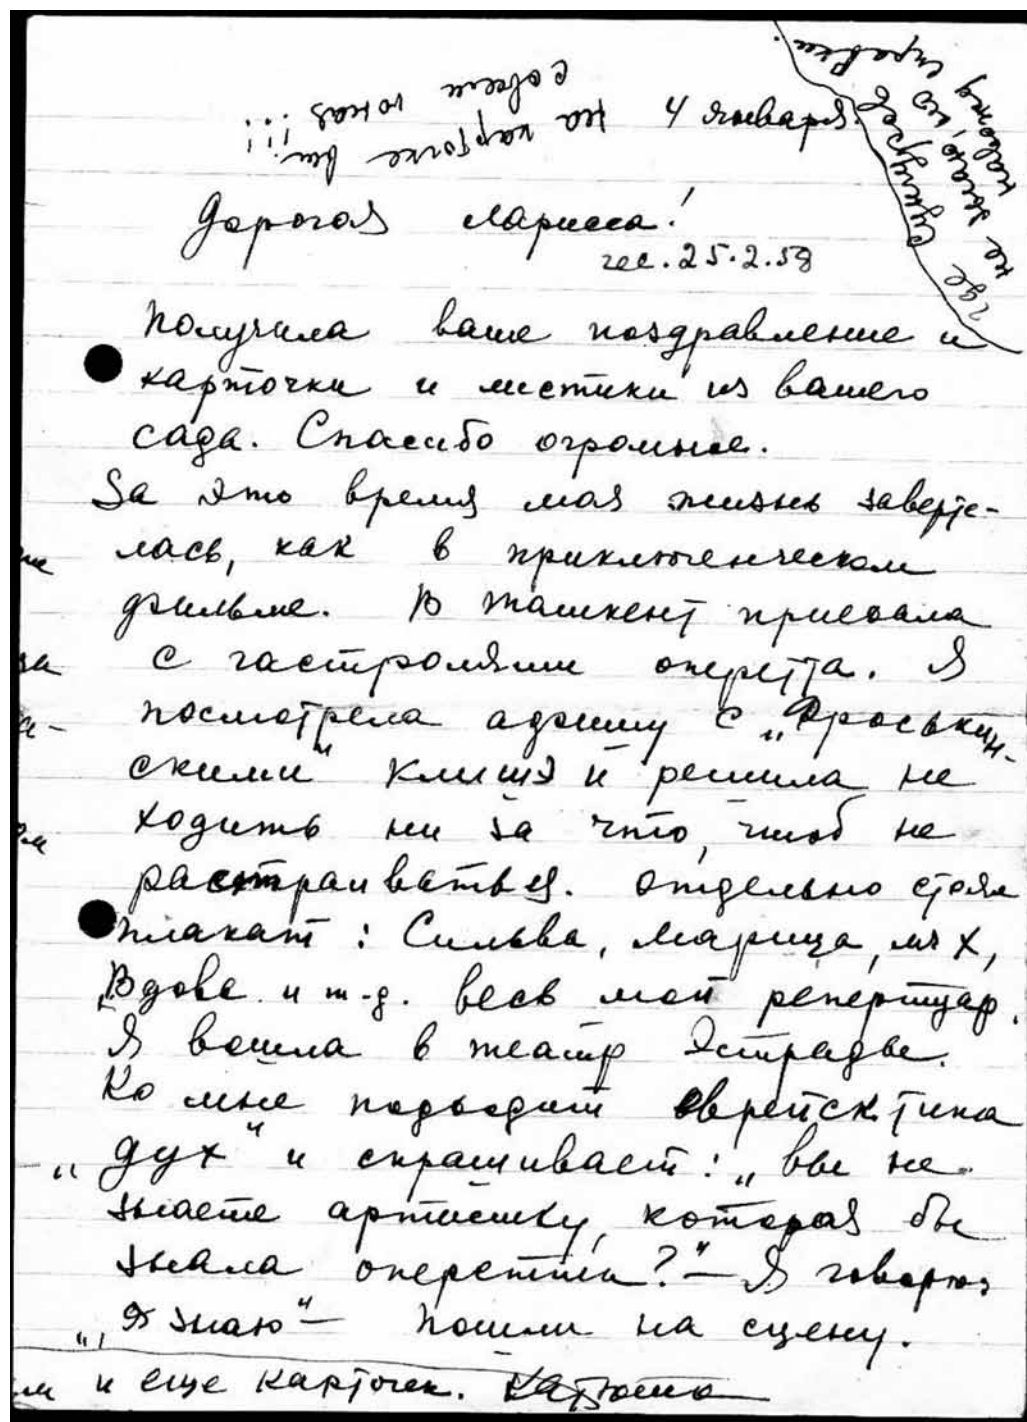 4 января.
на карточке вы
совсем юная!!!
где Сингурев
не знаю, но
навожу
справки.
Дорогая Лариса!
25.2.58
Получила ваше поздравление и
карточки и листики из вашего
сада. Спасибо огромное.
За это время моя жизнь заверте-
лась, как в приключенческом
фильме. В Ташкент приехала
с гастролями оперетта. Я
посмотрела афишу с „Фроськин-
скими" клишэ и решила не
ходить ни за что, чтоб не
расстраиваться. Отдельно стоял
плакат: Сильва, Марица, м-ч Х,
„Вдова и т-д. весь мой репертуар.
Я вошла в театр Эстрады.
Ко мне подходит еврейск типа
„дух" и спрашивает: „вы не
знаете артистку, которая бы
знала оперетты?" — Я говорю
„Я знаю" — пошли на сцену.
и еще карточек. Катюша